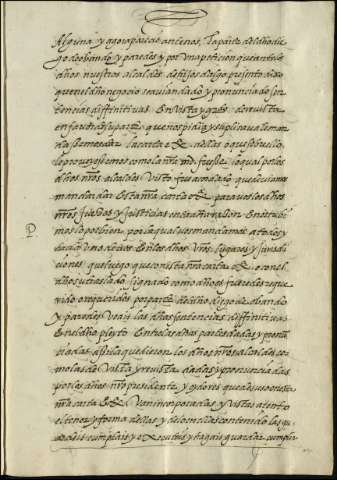 alguna y agora parescio ante nos la parte del dho die
go de obando y paredes y por una peticion que ante los
dhos nuestros alcaldes de hijosdalgo presento dixo
que en el dho negocio se avian dado y pronunciado sen
tencias diffinitivas en vista y grado de revista
en favor de su parte que nos pidia y suplicava le man
dasemos dar la carta executoria dellas o que sobre ello
le proveyesemos como la nra md. fuesse lo qual por los
dhos nros alcaldes visto fue acordado que deviamos
mandar dar esta nra carta para vos los dhos
nros juezes y justicias en la dha rrazon E nos tubi
mos lo por bien por la qual vos mandamos a todos y
cada uno de vos en los dhos vros lugares y juridi
ciones que luego que con esta nra carta o con el
dho su treslado signado como dho es fueredes reque
rido o requeridos por parte del dho diego de obando
y paredes veais las dhas sentencias diffinitivas
en el dho pleyto entre las dhas partes dadas y pronun
ciadas assi las que dieron los dhos nros alcaldes co
mo las de vista y revista dadas y pronunciadas
por los dhos nro presidente y oydores que de suso en esta
nra carta van incorporadas y vistas atento
el tenor y forma dellas y de lo en ellas contenido las gu
ardeis cumplais y executeis y hagais guardar cumplir